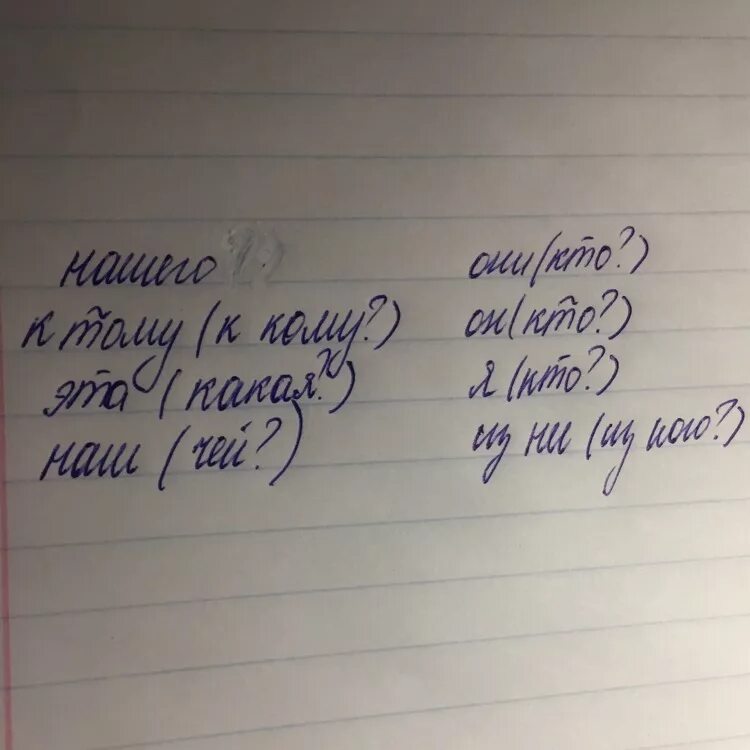 нашего
к тому (к кому?)
эта (какая?)
наш (чей?)
они (кто?)
он (кто?)
я (кто?)
из ни (из кого?)